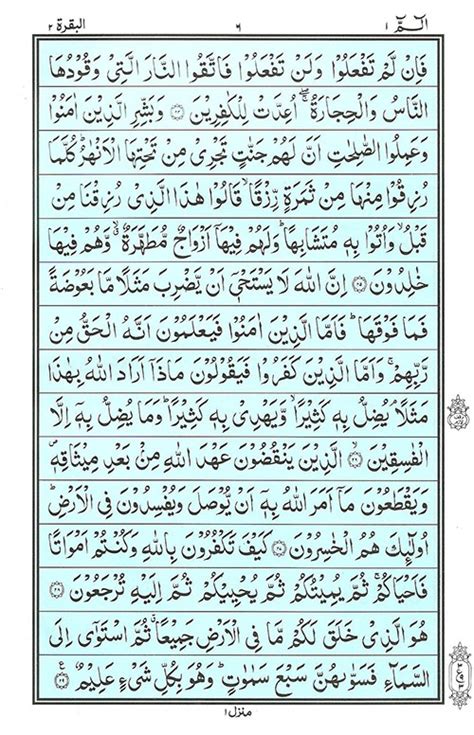 الٓمّٓ ١ ٦ البقرة ٢
فَاِنْ لَّمْ تَفْعَلُوْا وَلَنْ تَفْعَلُوْا فَاتَّقُوا النَّارَ الَّتِیْ وَقُوْدُهَا
النَّاسُ وَالْحِجَارَةُ ۖۚ اُعِدَّتْ لِلْكٰفِرِیْنَ ۝۲۴ وَبَشِّرِ الَّذِیْنَ اٰمَنُوْا
وَعَمِلُوا الصّٰلِحٰتِ اَنَّ لَهُمْ جَنّٰتٍ تَجْرِیْ مِنْ تَحْتِهَا الْاَنْهٰرُ ؕ كُلَّمَا
رُزِقُوْا مِنْهَا مِنْ ثَمَرَةٍ رِّزْقًا ۙ قَالُوْا هٰذَا الَّذِیْ رُزِقْنَا مِنْ
قَبْلُ ۙ وَاُتُوْا بِهٖ مُتَشَابِهًا ؕ وَلَهُمْ فِیْهَاۤ اَزْوَاجٌ مُّطَهَّرَةٌ ۙ وَّهُمْ فِیْهَا
خٰلِدُوْنَ ۝۲۵ اِنَّ اللّٰهَ لَا یَسْتَحْیٖۤ اَنْ یَّضْرِبَ مَثَلًا مَّا بَعُوْضَةً
فَمَا فَوْقَهَا ؕ فَاَمَّا الَّذِیْنَ اٰمَنُوْا فَیَعْلَمُوْنَ اَنَّهُ الْحَقُّ مِنْ
رَّبِّهِمْ ۚ وَاَمَّا الَّذِیْنَ كَفَرُوْا فَیَقُوْلُوْنَ مَاذَاۤ اَرَادَ اللّٰهُ بِهٰذَا
مَثَلًا ۘ یُضِلُّ بِهٖ كَثِیْرًا ۙ وَّیَهْدِیْ بِهٖ كَثِیْرًا ؕ وَمَا یُضِلُّ بِهٖۤ اِلَّا
الْفٰسِقِیْنَ ۝۲۶ الَّذِیْنَ یَنْقُضُوْنَ عَهْدَ اللّٰهِ مِنْۢ بَعْدِ مِیْثَاقِهٖ ۪
وَیَقْطَعُوْنَ مَاۤ اَمَرَ اللّٰهُ بِهٖۤ اَنْ یُّوْصَلَ وَیُفْسِدُوْنَ فِی الْاَرْضِ ؕ
اُولٰٓئِكَ هُمُ الْخٰسِرُوْنَ ۝۲۷ كَیْفَ تَكْفُرُوْنَ بِاللّٰهِ وَكُنْتُمْ اَمْوَاتًا
فَاَحْیَاكُمْ ۚ ثُمَّ یُمِیْتُكُمْ ثُمَّ یُحْیِیْكُمْ ثُمَّ اِلَیْهِ تُرْجَعُوْنَ ۝۲۸
هُوَ الَّذِیْ خَلَقَ لَكُمْ مَّا فِی الْاَرْضِ جَمِیْعًا ۗ ثُمَّ اسْتَوٰۤی اِلَی
السَّمَآءِ فَسَوّٰىهُنَّ سَبْعَ سَمٰوٰتٍ ؕ وَهُوَ بِكُلِّ شَیْءٍ عَلِیْمٌ ۝۲۹
منزل ١